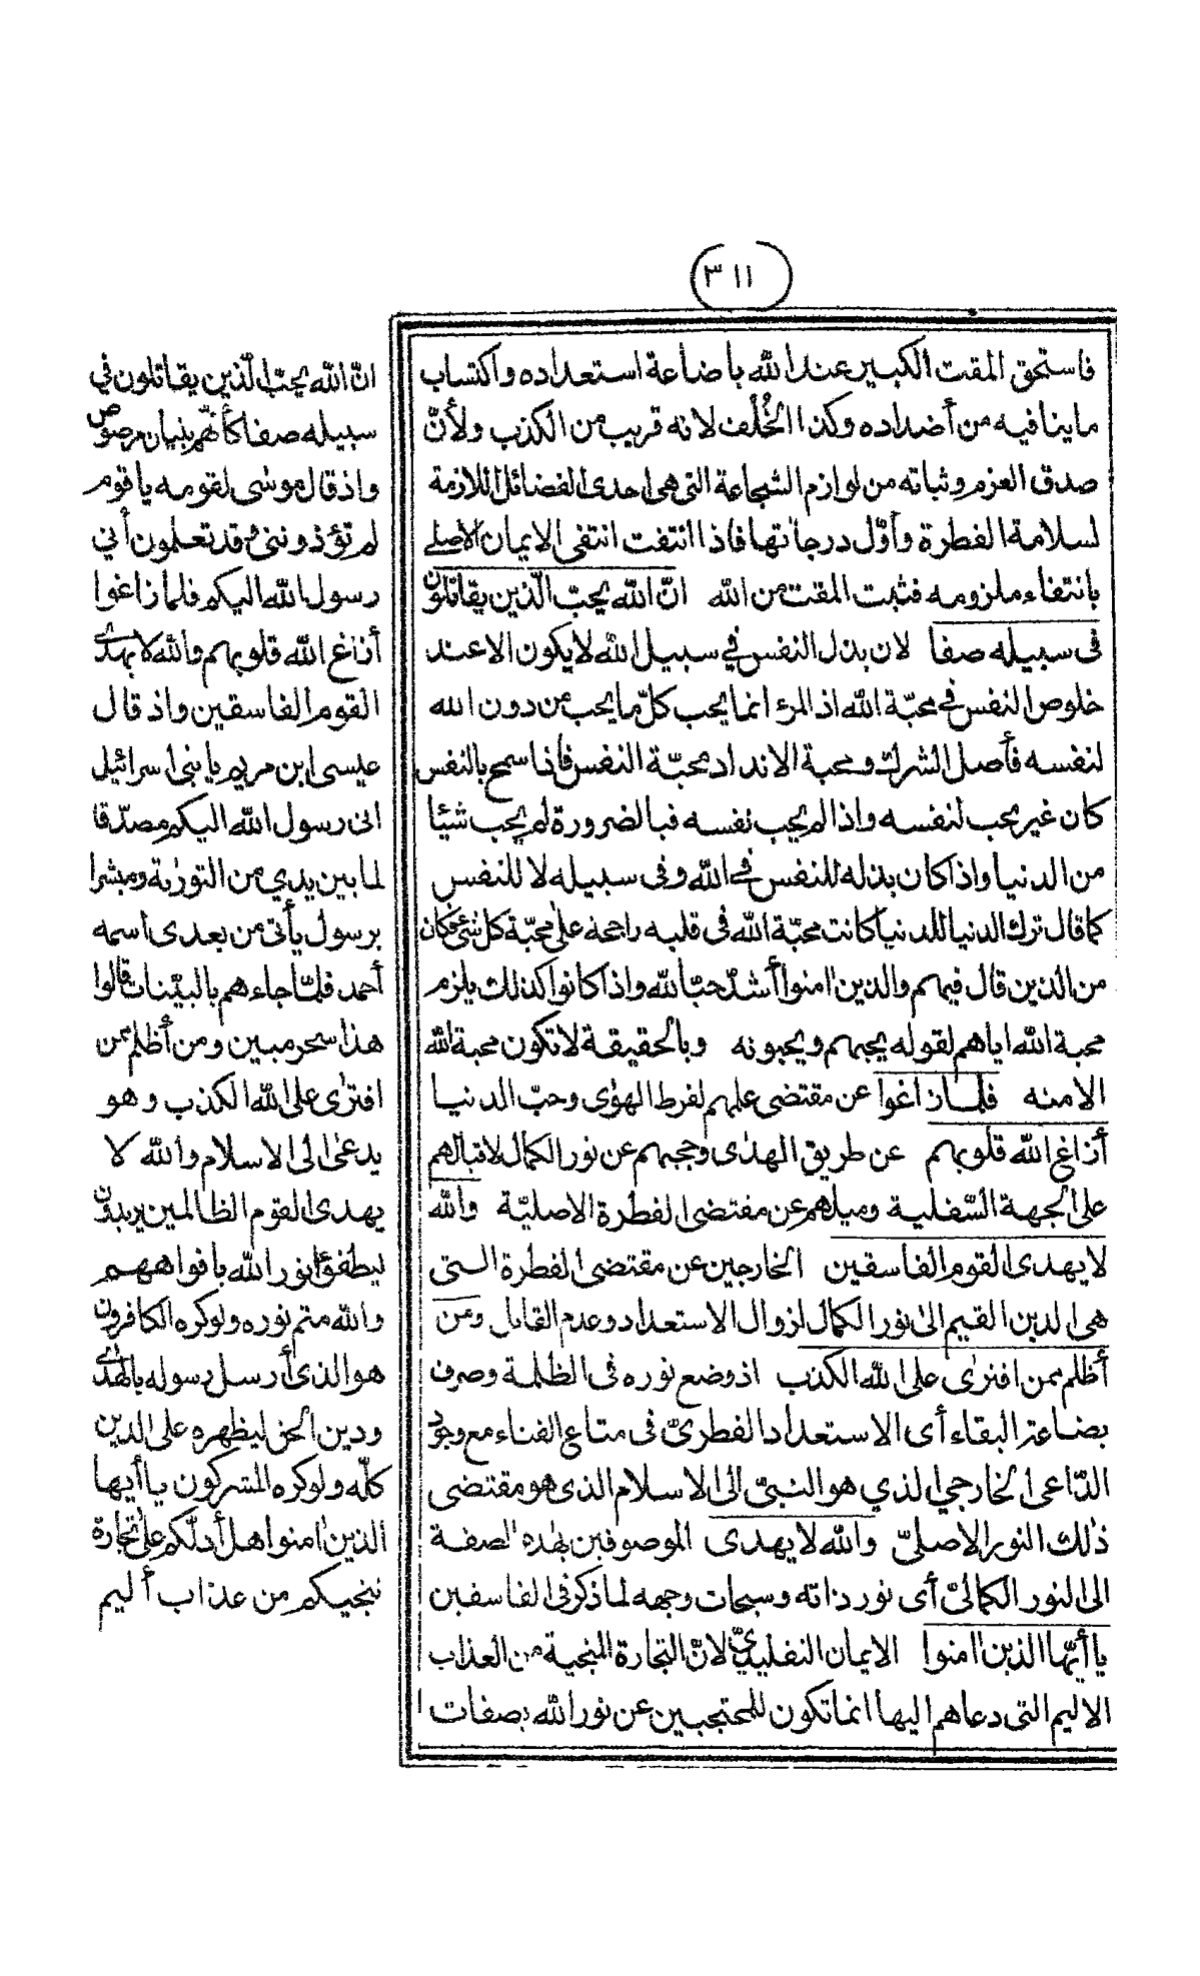 ٣١١
فاستحق المقت الكبير عند الله باضاعة استعداده واكتساب
ما ينافيه من أضداده وكذا الخُلْف لانه قريب من الكذب ولأنّ
صدق العزم وثباته من لوازم الشجاعة التى هى احدى الفضائل اللازمة
لسلامة الفطرة وأوّل درجاتها فاذا انتفت انتفى الايمان الاصلى
بانتفاء ملزومه فثبت المقت من الله انّ الله يحبّ الّذين يقاتلون
فى سبيله صفا لان بذل النفس فى سبيل الله لا يكون الا عند
خلوص النفس فى محبّة الله اذ المرء انما يحب كلّ ما يحب من دون الله
لنفسه فأصل الشرك ومحبة الانداد محبّة النفس فاذا سمح بالنفس
كان غير محب لنفسه واذا لم يحب نفسه فبالضرورة لم يحب شيئا
من الدنيا واذا كان بذله للنفس فى الله وفى سبيله لا للنفس
كما قال ترك الدنيا للدنيا كانت محبّة الله فى قلبه راجحة على محبّة كل شئ فكان
من الذين قال فيهم والذين اٰمنوا أشدّ حبّا لله واذا كانوا كذلك يلزم
محبة الله اياهم لقوله يحبهم ويحبونه وبالحقيقة لا تكون محبة الله
الا منه فلما زاغوا عن مقتضى علمهم لفرط الهوٰى وحبّ الدنيا
أزاغ الله قلوبهم عن طريق الهدٰى وحجبهم عن نور الكمال لاقبالهم
على الجهة السّفلية وميلهم عن مقتضى الفطرة الاصليّة والله
لا يهدى القوم الفاسقين الخارجين عن مقتضى الفطرة التى
هى الدين القيم الىٰ نور الكمال لزوال الاستعداد وعدم القابل ومن
أظلم ممن افترٰى على الله الكذب اذ وضع نوره فى الظلمة وصرف
بضاعة البقاء أى الاستعداد الفطرىّ فى متاع الفناء مع وجود
الدّاعى الخارجي الذي هو النبىّ الى الاسلام الذى هو مقتضى
ذٰلك النور الاصلىّ والله لا يهدى الموصوفين بهٰذه الصفة
الى النور الكمالىّ أى نور ذاته وسبحات وجهه لما ذكر فى الفاسقين
يا أيّها الذين اٰمنوا الايمان التقليديّ لانّ التجارة المنجية من العذاب
الاليم التى دعاهم اليها انما تكون للمحتجبين عن نور الله بصفات
انّ الله يحبّ الّذين يقاتلون في
سبيله صفا كأنّهم بنيان مرصوص
واذ قال موسٰى لقومه يا قوم
لم تؤذوننى وقد تعلمون أني
رسول الله اليكم فلما زاغوا
أزاغ الله قلوبهم والله لا يهدى
القوم الفاسقين واذ قال
عيسى ابن مريم يا بنى اسرائيل
انى رسول الله اليكم مصدّقا
لما بين يدي من التورٰية ومبشرا
برسول يأتى من بعدى اسمه
أحمد فلمّا جاءهم بالبيّنات قالوا
هذا سحر مبين ومن أظلم ممن
افترٰى على الله الكذب وهو
يدعٰى الى الاسلام والله لا
يهدى القوم الظالمين يريدون
ليطفؤا نور الله بافواههم
والله متم نوره ولو كره الكافرون
هو الذى أرسل رسوله بالهدٰى
ودين الحق ليظهره على الدين
كلّه ولو كره المشركون يا أيها
الذين اٰمنوا هل أدلّكم على تجارة
تنجيكم من عذاب أليم